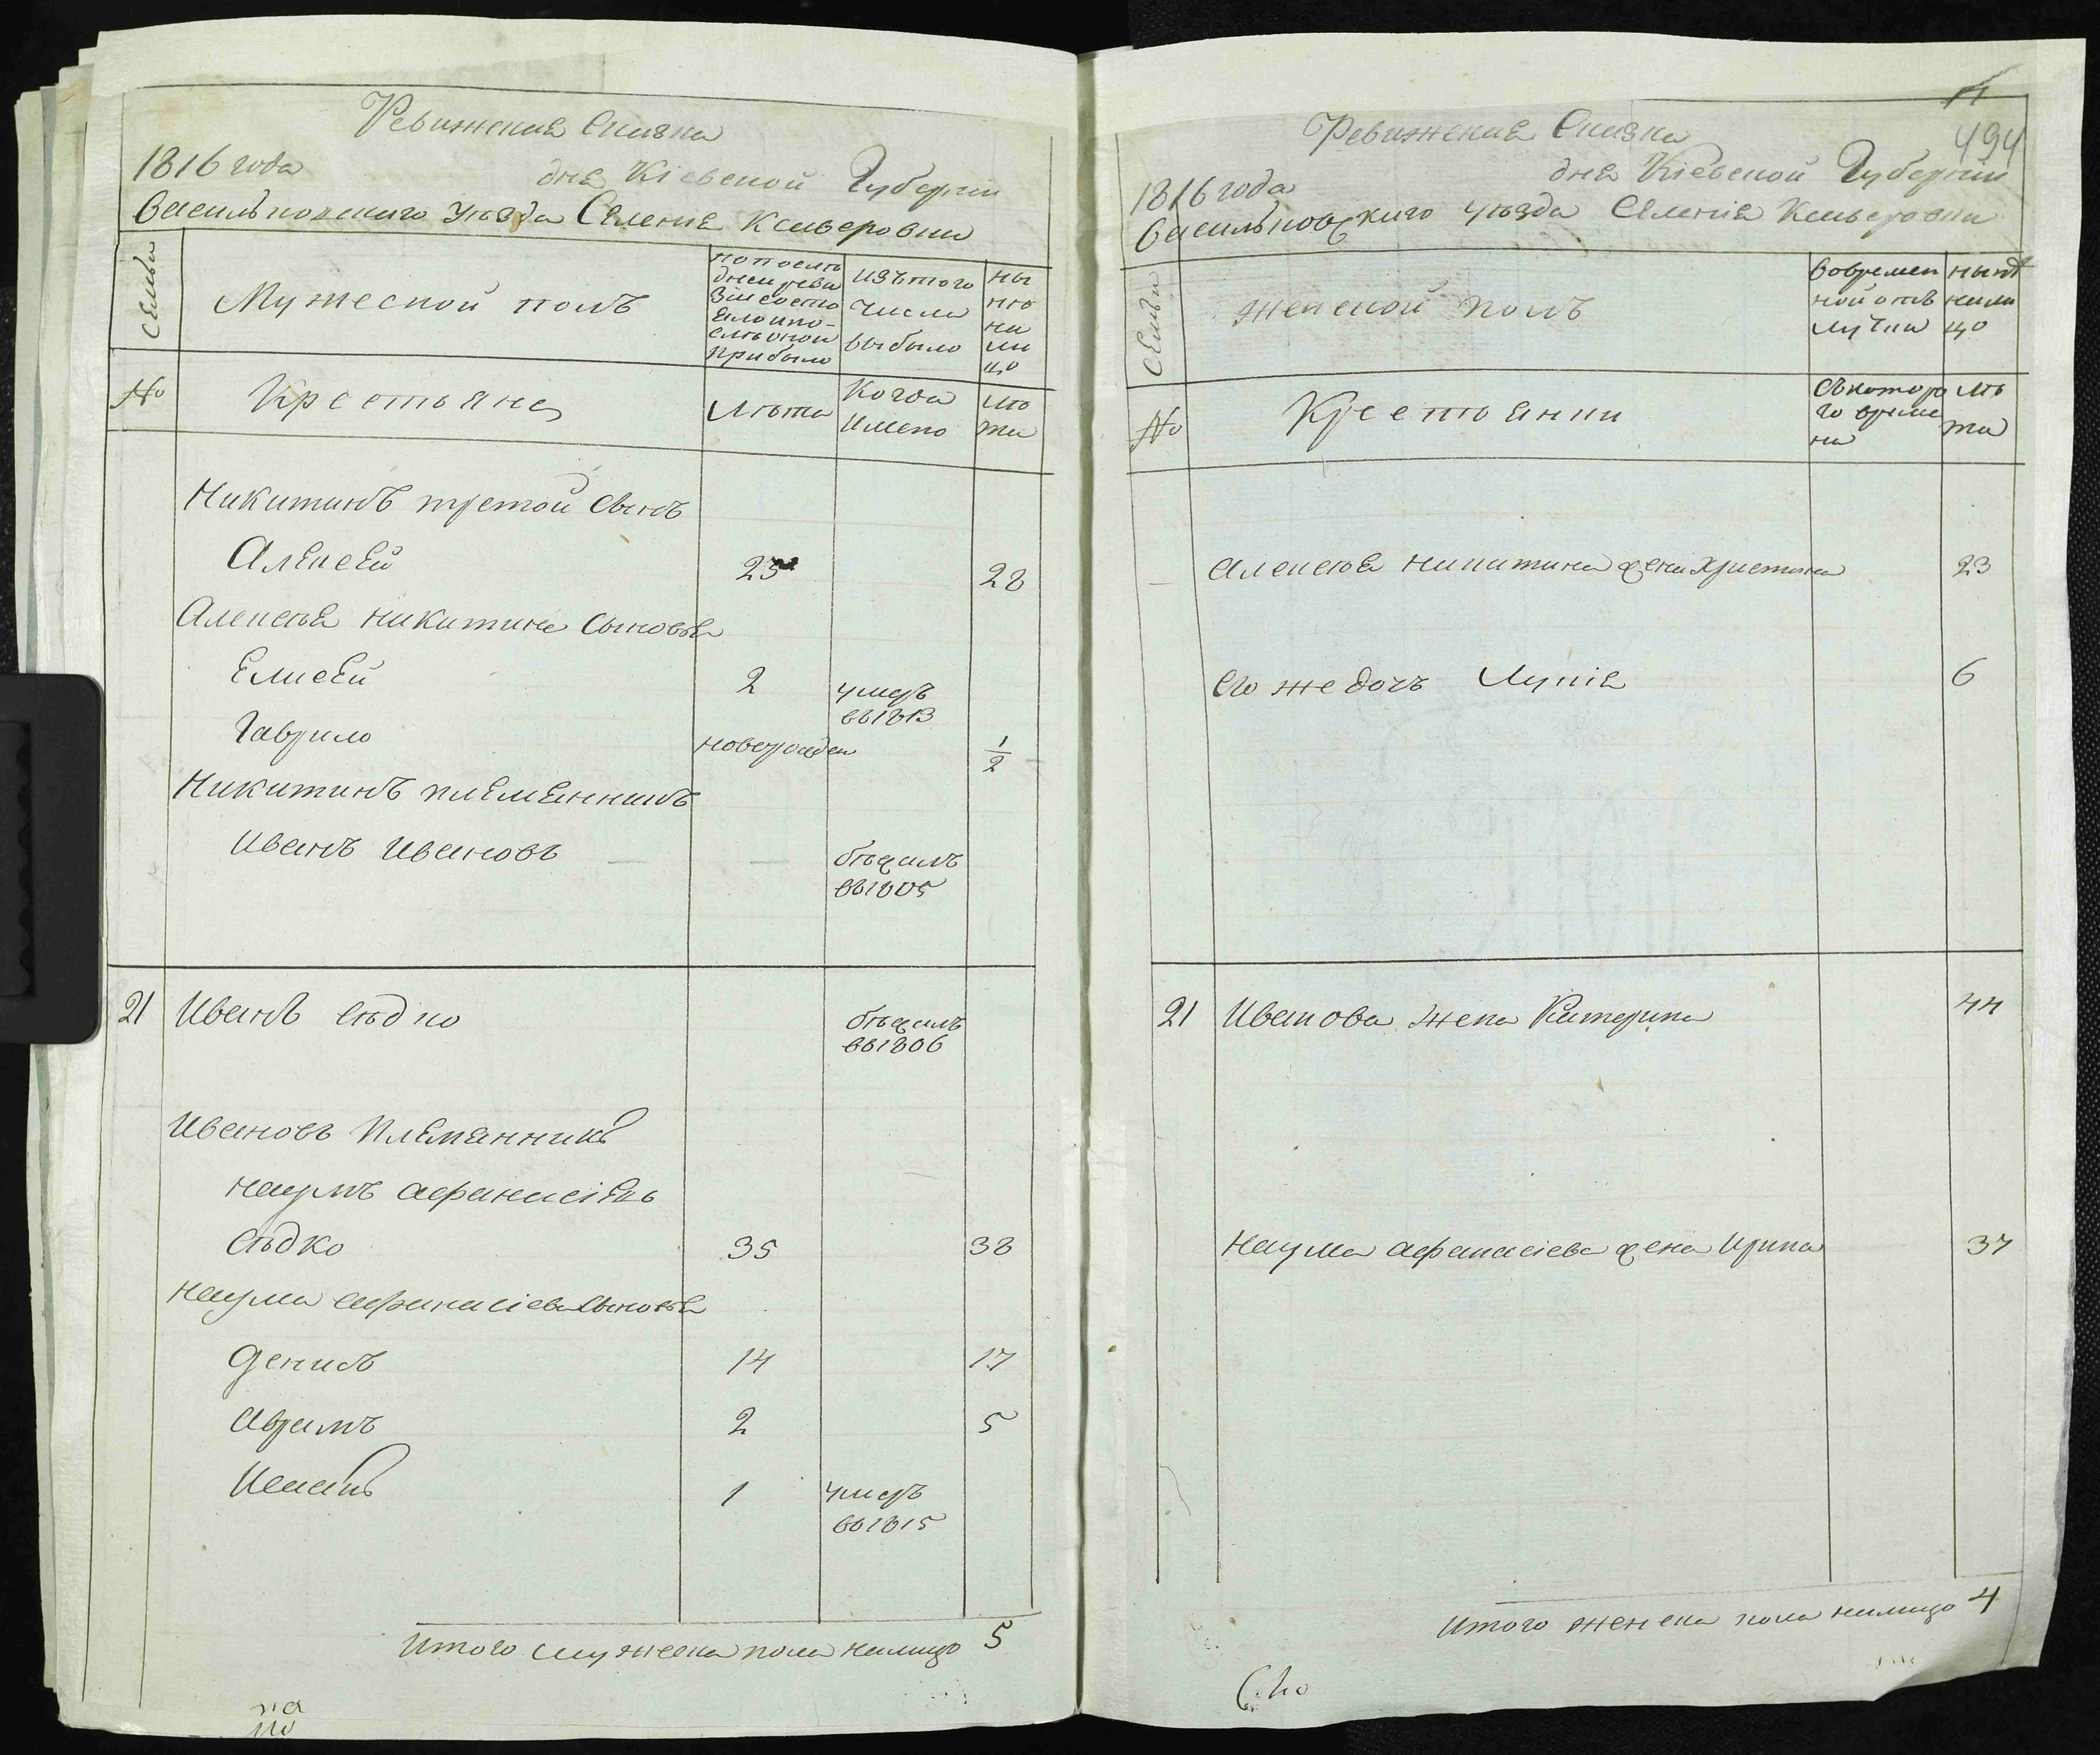 Ревижская Сказка
1816 года
дня Кіевской Губерніи
Васильковского Уѣзда Селенія Ксаверовки
Семьи
Мужеской полъ
По последней ревизіи состояло и после оной прибыло
Изътого числа выбыло
Ныне на лицо
№
Крестьяне
Лѣта
Когда Имено
Лѣта
Никитинъ третой Сынъ
Алексей 25 28
Алексѣя Никитина Сыновья
Елисей 2 умеръ
въ1813
Гаврило новорожден 1/2
Никитинъ племенникъ
Иванъ Ивановъ — — бѣжалъ
въ1805
21 Иванъ Сѣдко бѣжалъ
въ1806
Ивановъ Племянникъ
Наумъ Афанасіевъ
Сѣдко 35 38
Наума Афанасіева Сыновья
Денисъ 14 17
Аврамъ 2 5
Исакъ 1 умеръ
въ1815
Итого мужеска пола налицо 5
на
по
494
Ревижская Сказка
1816 года
дня Кіевской Губерніи
Васильковского уѣзда Селенія Ксаверовки
Семьи
женской полъ
Вовременной отлучки
ныне налицо
№
Крестьянки
Съкоторого времени
Лѣта
Алексѣя Никитина жена Христина 23
его же дочь Лукія 6
21 Иванова жена Катерина 44
Наума Афанасіева жена Ирина 37
Итого женска пола налицо 4